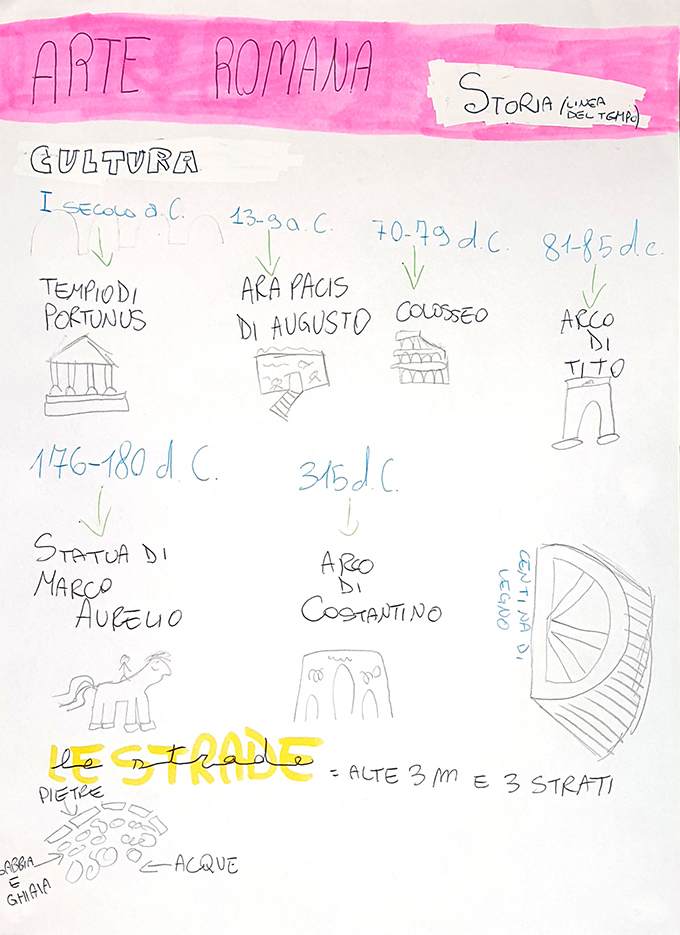 ARTE ROMANA
STORIA (LINEA
DEL TEMPO)
CULTURA
I SECOLO a.C.
13-9 a.C.
70-79 d.C.
81-85 d.C.
TEMPIO DI
PORTUNUS
ARA PACIS
DI AUGUSTO
COLOSSEO
ARCO
DI
TITO
176-180 d.C.
315 d.C.
STATUA DI
MARCO
AURELIO
ARCO
DI
COSTANTINO
CENTINA DI
LEGNO
LE STRADE
le strade
= ALTE 3 M E 3 STRATI
PIETRE
SABBIA
E
GHIAIA
ACQUE